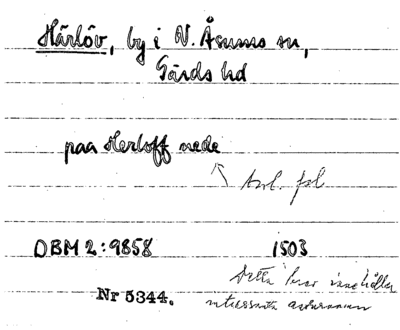 Härlöv, by i N. Åsums sn,
Gärds hd
paa Herloff nede
Anl. fol
DBM 2:9858 1503
Detta brev innehåller
Nr 5344. intressanta